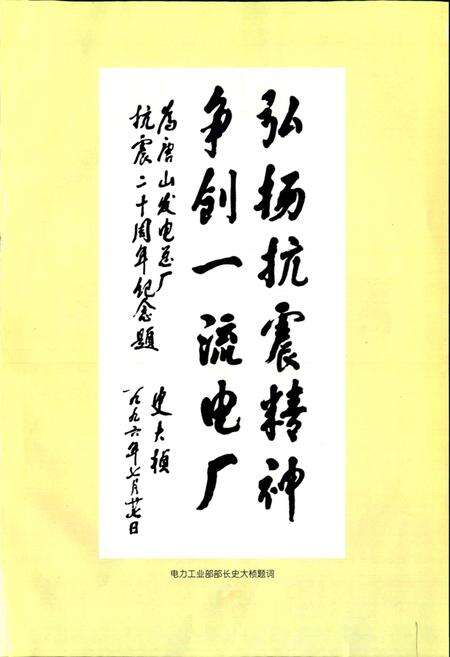 弘扬抗震精神
争创一流电厂
为唐山发电总厂
抗震二十周年纪念题
史大桢
一九九六年七月廿七日
电力工业部部长史大桢题词